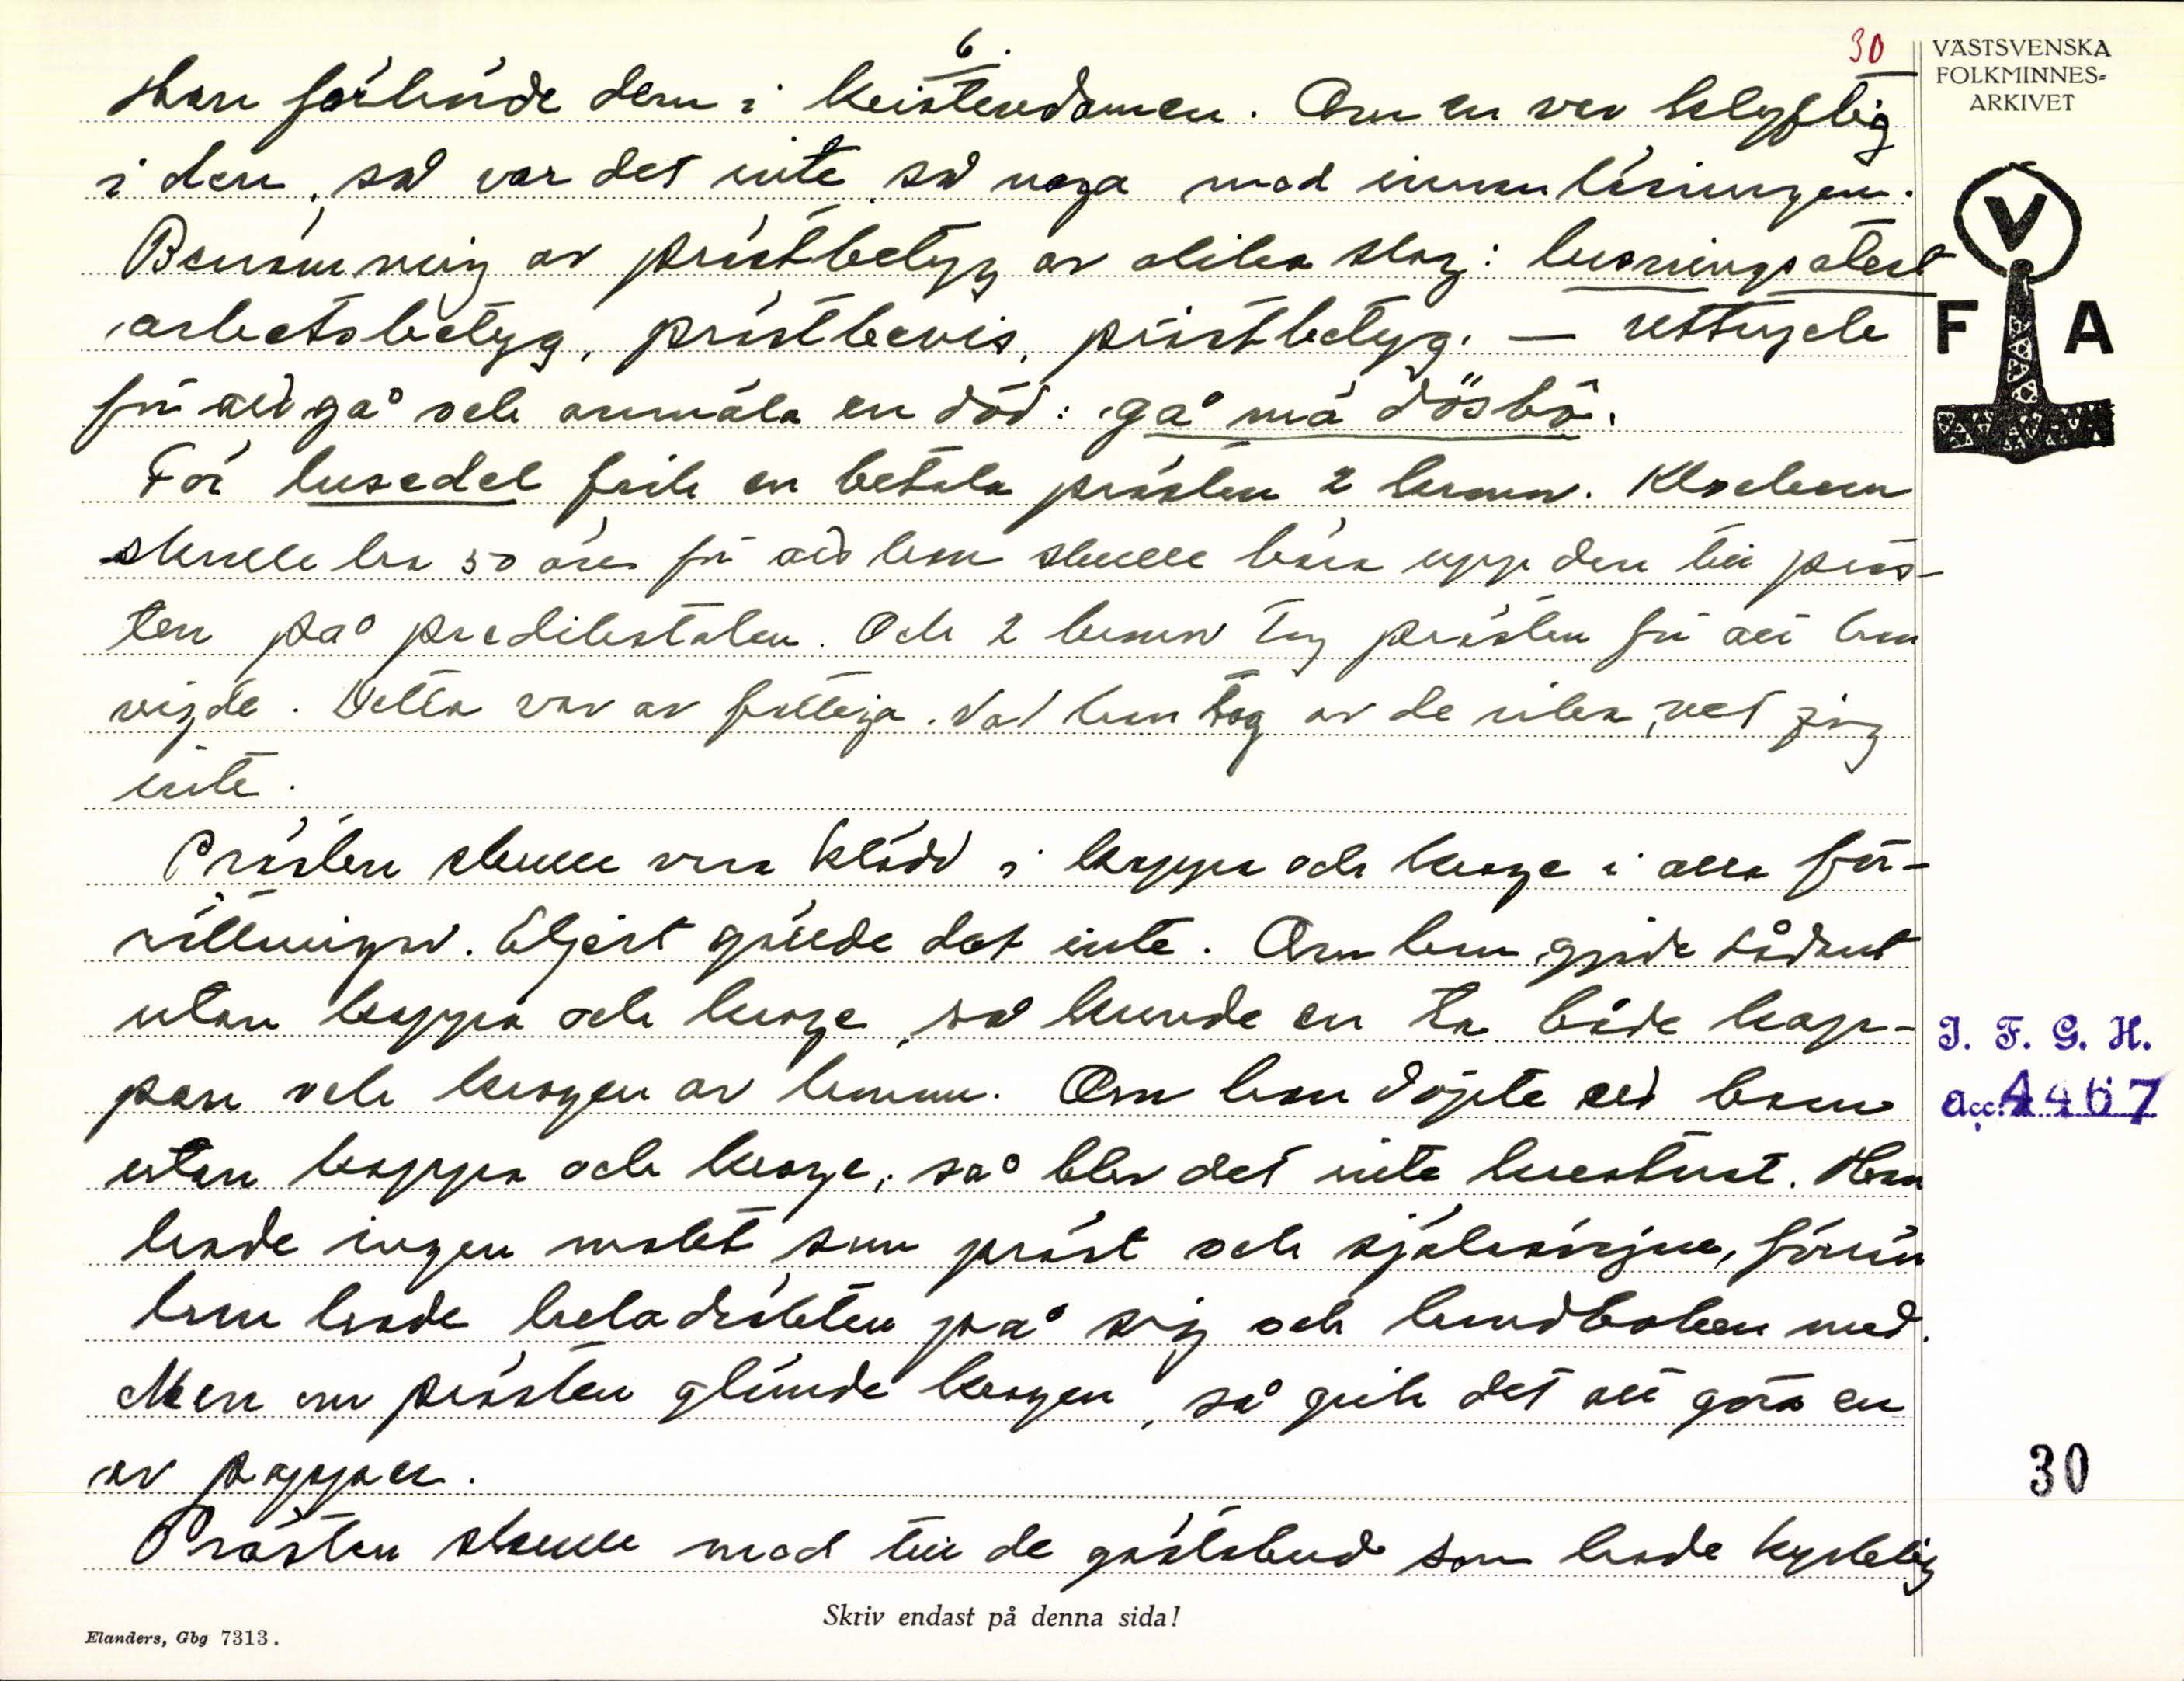 6.
30
VÄSTSVENSKA
FOLKMINNES-
ARKIVET
Han förhörde dem i kristendomen. Om en var klyftig
i den, så var det inte så noga med innanläsningen.
Benämning av prästbetyg av olika slag: lysningsatest
arbetsbetyg, prästbevis, prästbetyg. — uttryck
för att gå och anmäla en död: gå mä dösbö.
För lusedel fick en betala prästen 2 kronor. Klockaren
skulle ha 50 öre för att han skulle bära upp den till präs-
ten på predikstolen. Och 2 kronor tog prästen för att han
vigde. Detta var av fattiga. Vad han tog av de rika, vet jag
inte.
Prästen skulle vara klädd i kappa och krage i alla för-
rättningar. Eljest gällde det inte. Om han gjorde sådant
utan kappa och krage, så kunde en ta både kap-
pan och kragen av honom. Om han döpte ett barn
utan kappa och krage, så blev det inte kristnat. Han
hade ingen makt som präst och själasörjare, förrän
han hade hela dräkten på sig och handboken med.
Men om prästen glömde kragen, så gick det att göra en
av papper.
Prästen skulle med till de gästabud som hade kyrklig
V
F A
I. F. G. H.
Acc. 4467
30
Skriv endast på denna sida!
Elanders, Gbg 7313.